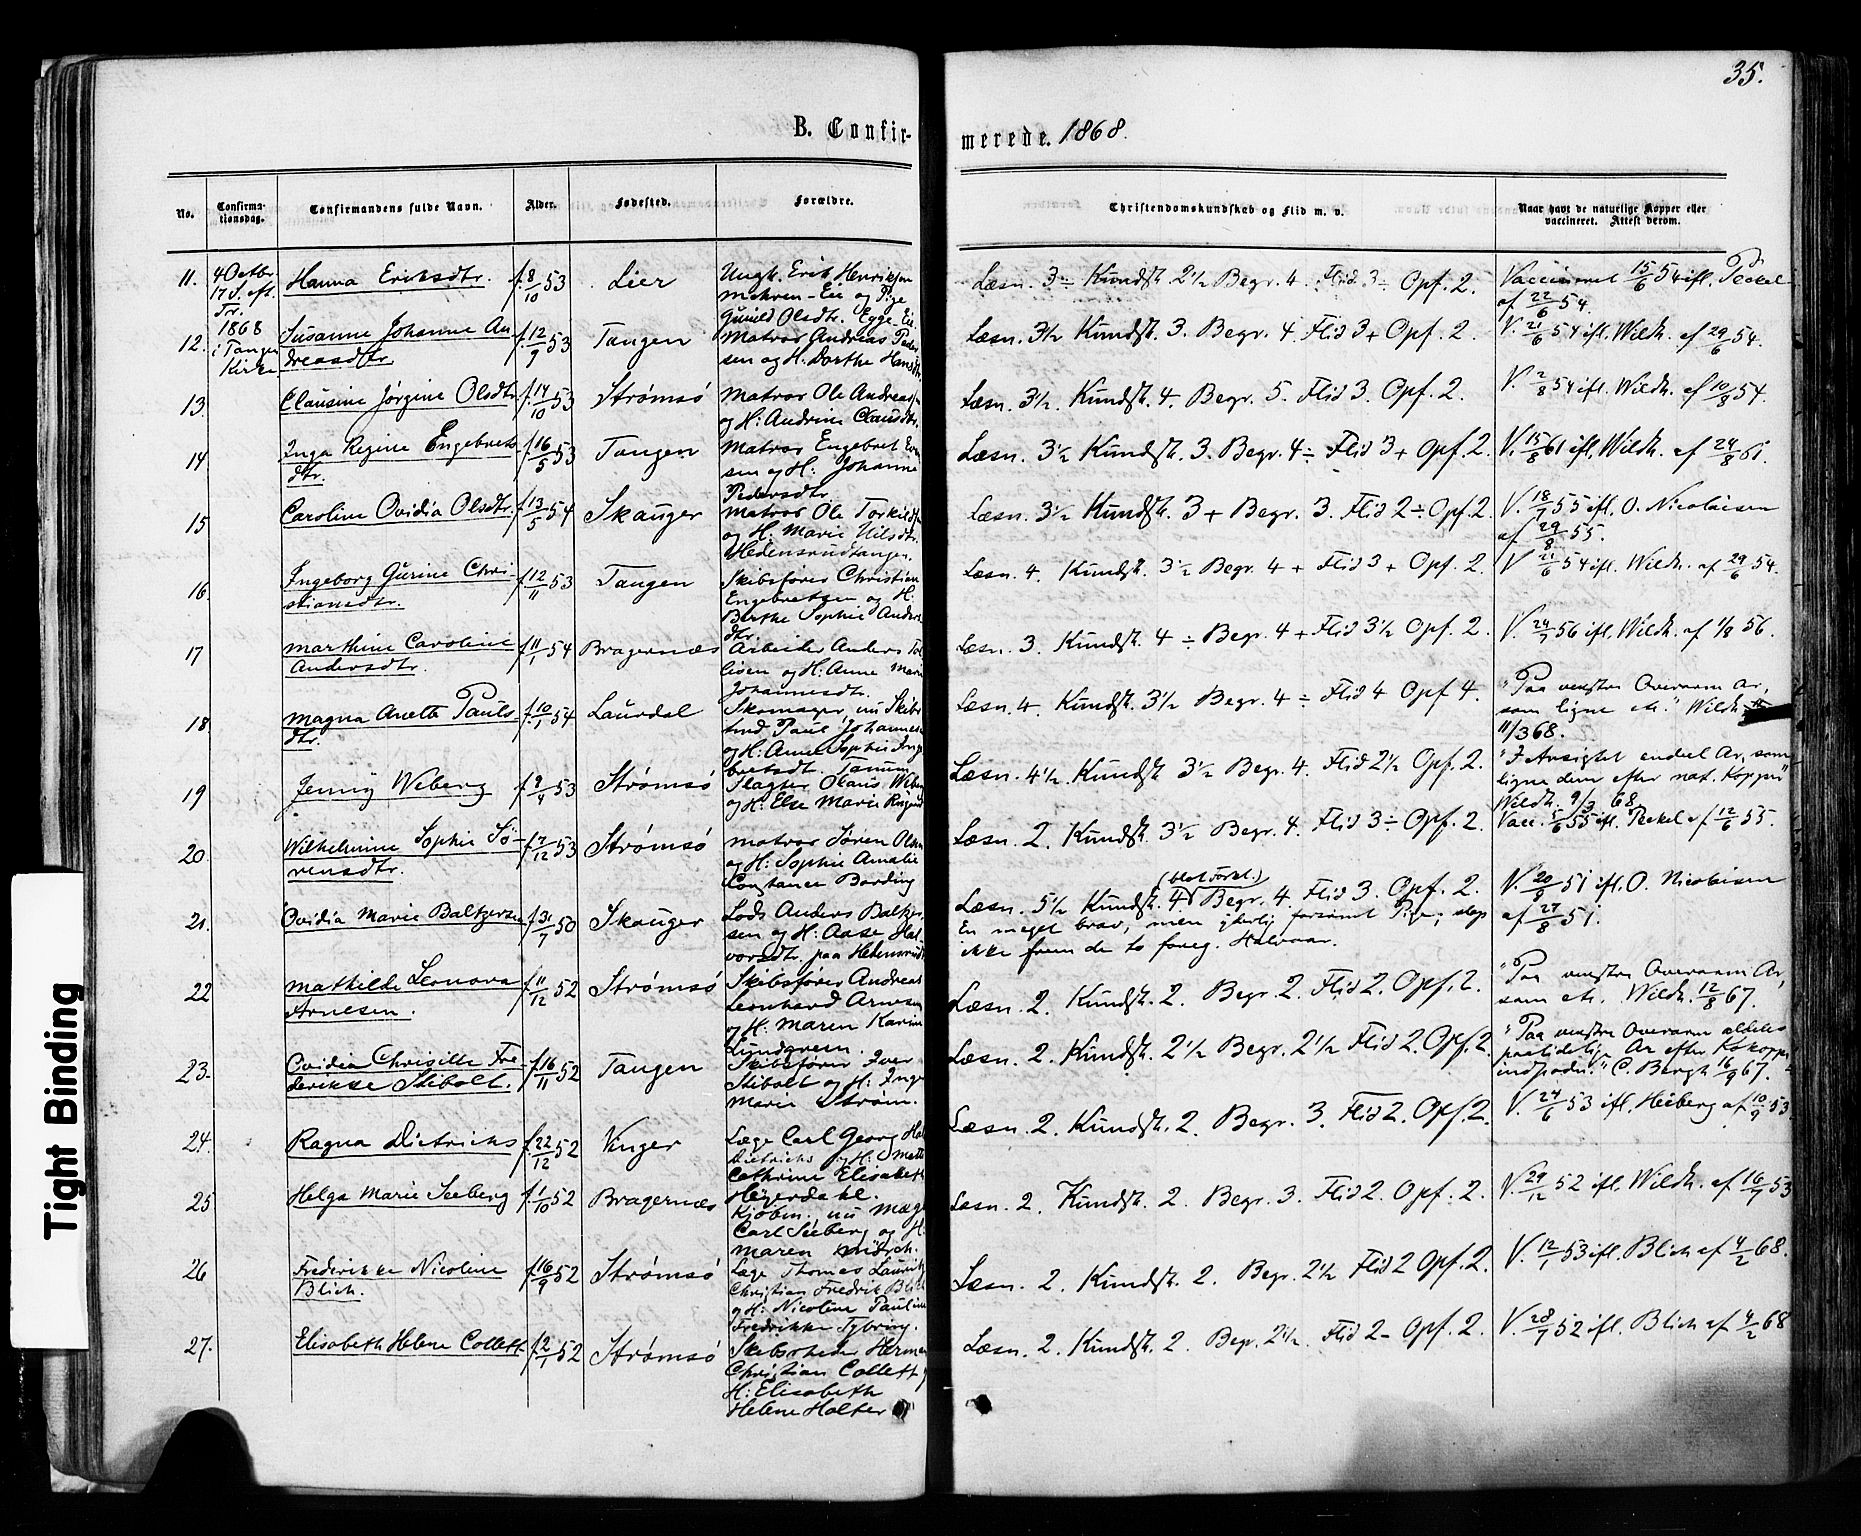 35.
B. Confir-
merede. 1868.
No.
Confirma-
tionsdag.
Confirmandens fulde Navn.
Alder.
Fødested.
Forældre.
Christendomskundskab og Flid m. v.
Naar havt de naturlige Kopper eller
vaccineret. Attest derom.
11. 4 Octbr. Hanna Eriksdtr. f. 8/10 53 Lier Ungk. Erik Henriksen
17 S. eft. Mehren-Eie og Pige
Tr. Gunild Olsdtr. Egge-Eie
Læsn. 3 ÷ Kundsk. 2½ Begr. 4. Flid 3 ÷ Opf. 2. Vaccineret 15/6 54 ifl. Peckel
af 22/6 54.
12. 1868 Susanne Johanne An f. 12/9 53 Tangen Matros Andreas Peder
i Tangen dreasdtr. sen og H. Dorthe Hansdtr.
Kirke
Læsn. 3½ Kundsk. 3. Begr. 4. Flid 3 + Opf. 2. V. 21/6 54 ifl. Wildh. af 29/6 54.
13. Clausine Jørgine Olsdtr. f. 14/10 53 Strømsø Matros Ole Andreas
og H: Andrine Clausdtr.
Læsn. 3½. Kundsk. 4. Begr. 5. Flid 3. Opf. 2. V. 2/8 54 ifl. Wildh. af 10/8 54.
14 Inga Regine Engebrets f. 16/5 53 Tangen Matros Engebret
dtr. sen og H: Johanne
Pedersdtr.
Læsn. 3½ Kundsk. 3. Begr. 4 ÷ Flid 3 + Opf. 2. V. 15/8 61 ifl. Wildh. af 24/8 61.
15 Caroline Ovidia Olsdtr. f. 13/5 54 Skauger Matros Ole Torkild
og H. Marie Nilsdtr.
Hedensrudtangen.
Læsn. 3½ Kundsk. 3 + Begr. 3. Flid 2 ÷ Opf. 2. V. 18/7 55 ifl. O. Nicolaisen
af 29/8 55.
16. Ingeborg Gurine Chri- f. 12/11 53 Tangen Skibsfører Christian
stiansdtr. Engebretsen og H:
Berthe Sophie Anders
dtr.
Læsn. 4. Kundsk. 3½ Begr. 4 + Flid 3 + Opf. 2. V 21/6 54 ifl. Wildh. af 29/6 54.
17 Marthine Caroline f. 11/1 54 Bragernæs Arbeider Anders Tol
Andersdtr. lisen og H: Anne Marie
Johannesdtr.
Læsn. 3. Kundsk. 4 ÷ Begr. 4 + Flid 3½ Opf. 2. V. 24/7 56 ifl. Wildh. af 1/8 56.
18. Magna Anette Pauls- f. 10/1 54 Laurdal Skomager, nu Skibs
dtr. tmd. Paul Johannes
og H: Anne Sophie Inge
bretsdt. Tanum
Læsn. 4. Kundsk. 3½ Begr. 4 ÷ Flid 4 Opf 4. "Paa venstre Overarm Ar,
som ligne etc." Wildh.
11/3 68.
19 Jenny Wiberg f. 2/4 53 Strømsø Slagter Olaus Wiber
og H: Else Marie
Læsn. 4½. Kundsk. 3½ Begr. 4. Flid 2½ Opf. 2. "I Ansigtet endeel Ar, som
ligne dem efter nat. Kopper"
Wildh. 9/3 68
20. Wilhelmine Sophie Sø- f. 7/12 53 Strømsø Matros Søren Olsen
rensdtr. og H: Sophie Amalie
Constance Bording
Læsn. 2. Kundsk. 3½ Begr. 4. Flid 3 ÷ Opf. 2. Vacc. 5/6 55 ifl. Peckel af 12/6 55.
21. Ovidia Marie Baltzersen f. 31/7 50 Skauger Lods Anders Baltzer
sen og H: Aase Hal
vorsdtr. paa Hedensrud
Læsn. 5½ Kundsk. 4 (blot Forkl.) Begr. 4. Flid 3. Opf. 2. V. 20/8 51 ifl. O. Nicolaisen
En meget brav, men yderlig forsømt Pige; slap af 27/8 51.
ikke frem de to foreg. Halvaar.
22 Mathilde Leonora f. 11/12 52 Strømsø Skibsfører Andreas
Arnesen. Leonhard Arnesen
og H: Maren Karine
Lundgreen.
Læsn. 2. Kundsk. 2. Begr. 2. Flid 2. Opf. 2. "Paa venstre Overarm Ar,
som etc. Wildh. 12/8 67.
23. Ovidia Chrisilte Fre- f. 16/11 52 Tangen Skibsfører Iver
derikke Stibolt. Stibolt og H: Inge
Marie Strøm.
Læsn. 2. Kundsk. 2½ Begr. 2½ Flid 2. Opf. 2. "Paa venstre Overarm aldeles
paalidelige Ar efter Kokoppe
indpodn." C. Bergh 16/9 67.
24. Ragna Dietrichs f. 22/12 52 Vinger Læge Carl Georg
Dietrichs og H: Mette
Cathrine Elisabeth
Heyerdahl.
Læsn. 2. Kundsk. 2. Begr. 3. Flid 2. Opf. 2. V. 24/6 53 ifl. Heiberg af 10/9 53
25 Helga Marie Seeberg f. 1/10 52 Bragernæs Kjøbm. nu Mægl
Carl Seeberg og H:
Maren Münch.
Læsn. 2. Kundsk. 2. Begr. 3. Flid 2. Opf. 2. V. 29/12 52 ifl. Wildh. af 16/7 53
26 Frederikke Nicoline f. 16/9 52 Strømsø Læge Thomas Lauritz
Blich. Christian Fredrik Blich
og H: Nicoline Pauline
Fredrikke Tybring.
Læsn. 2. Kundsk. 2. Begr. 2½ Flid 2 Opf. 2. V. 12/1 53 ifl. Blich af 4/2 68.
27. Elisabeth Helene Collett f. 2/1 52 Strømsø Skibsrheder Herman
Christian Collett
H: Elisabeth
Helene Holter
Læsn. 2. Kundsk. 2. Begr. 2½. Flid 2 - Opf. 2. V. 28/7 52 ifl. Blich af 4/2 68
Tight Binding